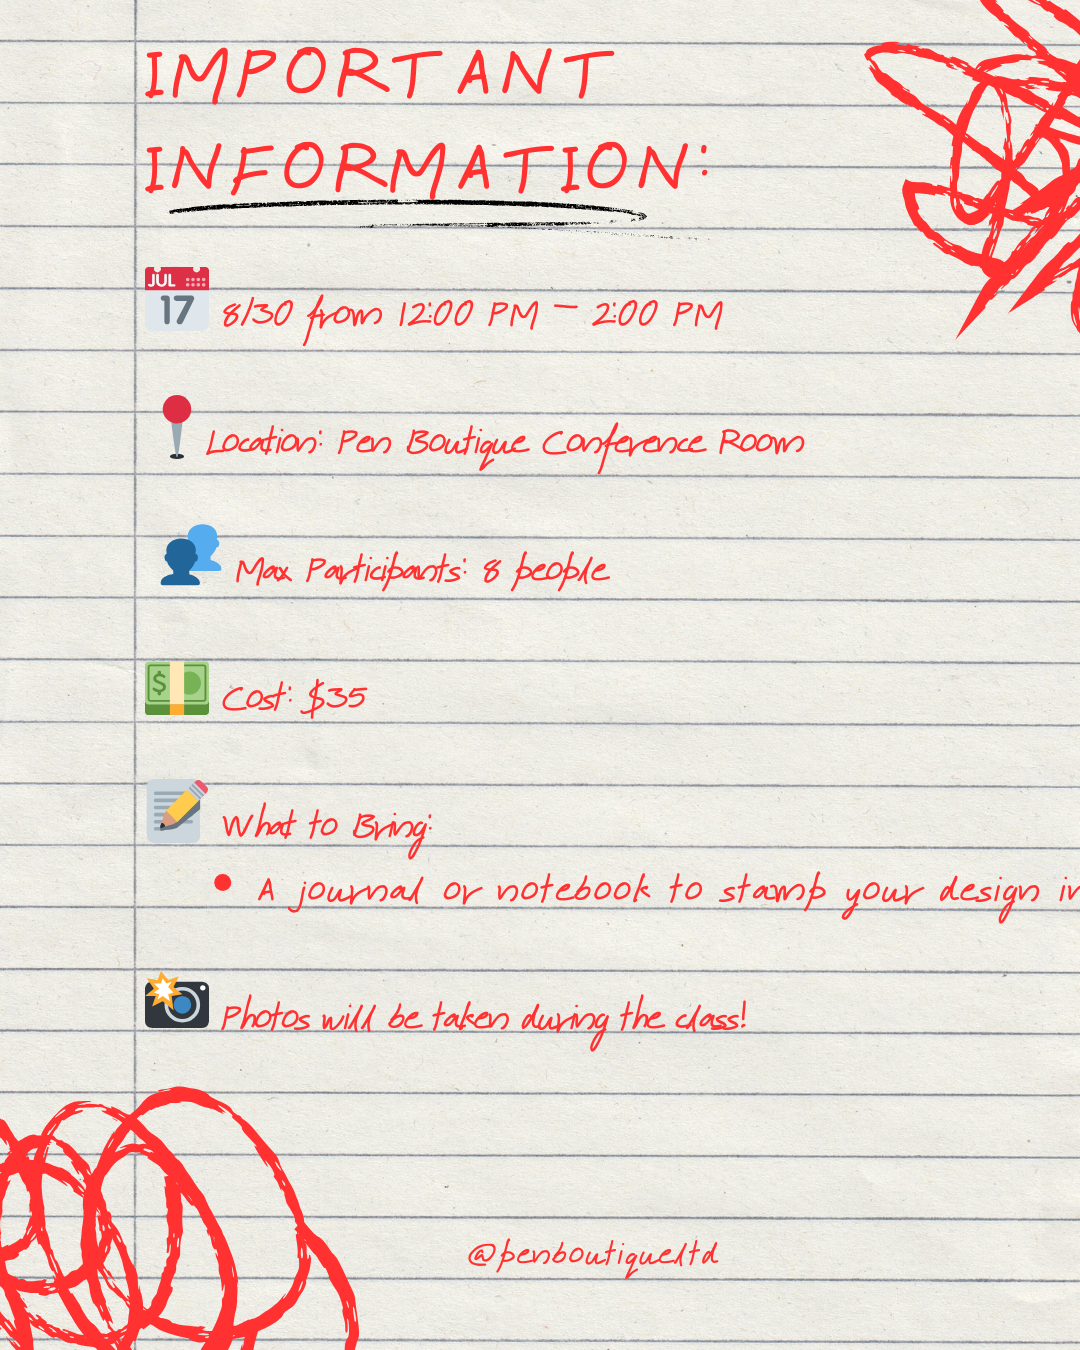 IMPORTANT
INFORMATION:
JUL
17
8/30 from 12:00 PM - 2:00 PM
Location: Pen Boutique Conference Room
Max Participants: 8 people
$
Cost: $35
What to Bring:
• A journal or notebook to stamp your design in
Photos will be taken during the class!
@penboutiqueltd